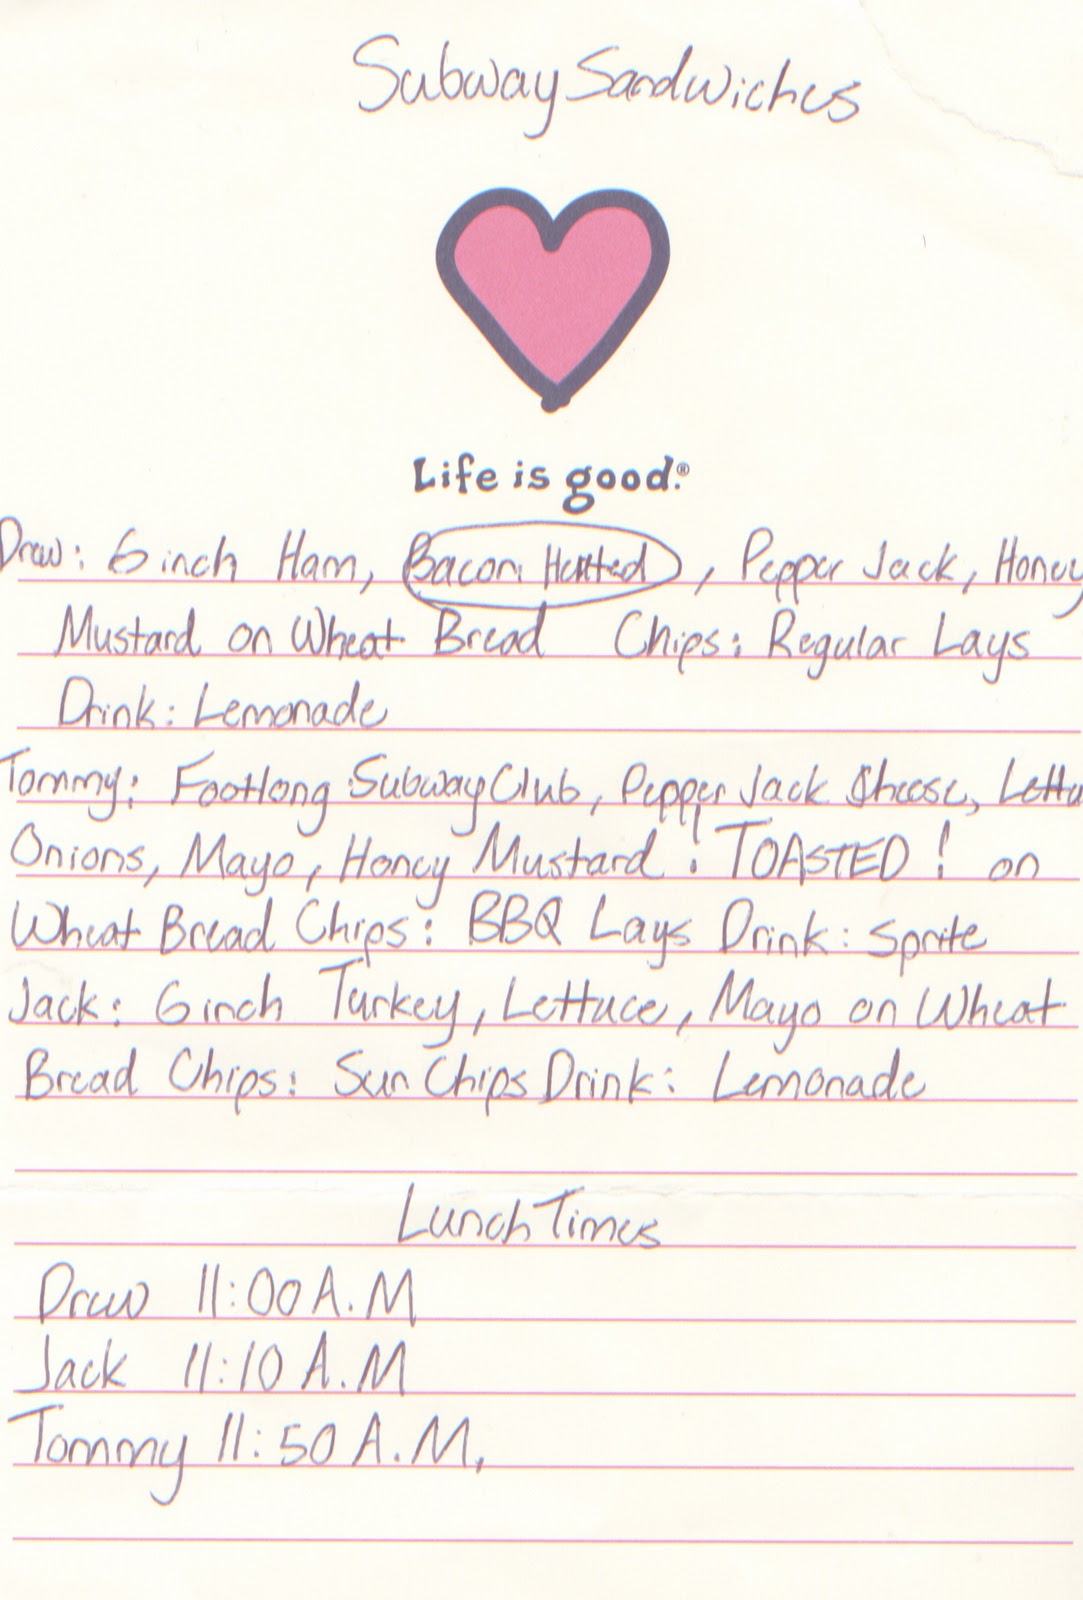 Subway Sandwiches
Life is good.®
Drew: 6 inch Ham, Bacon Heated, Pepper Jack, Honey
Mustard on Wheat Bread Chips: Regular Lays
Drink: Lemonade
Tommy: Footlong Subway Club, Pepper Jack Cheese, Lettu
Onions, Mayo, Honey Mustard ! TOASTED ! on
Wheat Bread Chips: BBQ Lays Drink: Sprite
Jack: 6 inch Turkey, Lettuce, Mayo on Wheat
Bread Chips: Sun Chips Drink: Lemonade
Lunch Times
Drew 11:00 A.M
Jack 11:10 A.M
Tommy 11:50 A.M.